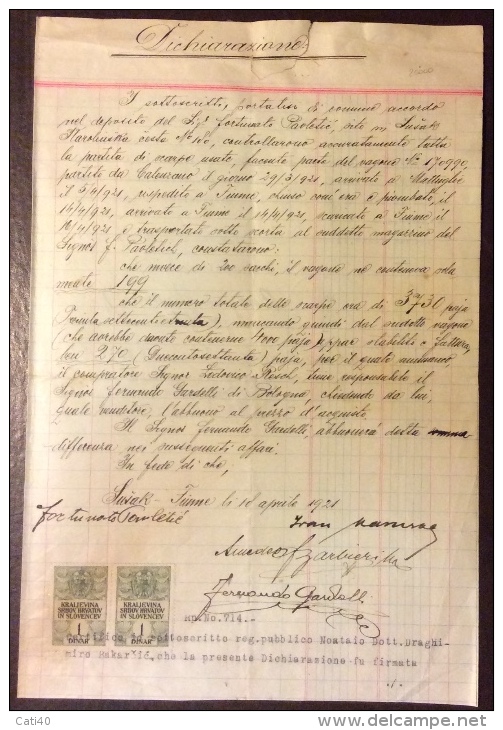 Dichiarazione
I sottoscritti, di comune accordo
nel deposito del Sigr Fortunato Pavletić, sito in Sušak
cesta No 16, controllarono accuratamente tutta
la partita di scarpe usate, facente parte del vagone No 170990,
partito da Catenzaro il giorno 29/3/921, arrivato a Mattuglie
il 5/4/921, rispedito a Fiume, chiuso com'era e piombato, il
14/4/921, arrivato a Fiume il 14/4/921, scaricato a Fiume il
16/4/921 e trasportato sotto scorta al suddetto magazzino del
Signor F. Pavletich, constatarono:
che invece di 200 sacchi, il vagone ne conteneva sola
mente 199
che il numero totale delle scarpe era di 3730 paja
mancando quindi dal suddetto vagone
(che avrebbe dovuto contenerne 4000 paja, come stabilito e fattura,
ben 270 (Duecentosettanta) paja, per il quale ammanco,
il compratore Signor Lodovico tiene responsabile il
Signor Fernando Gardelli di Bologna, chiedendo da lui,
quale venditore, l'abbuono al prezzo d'acquisto
Il Signor Fernando Gardelli abbuonerà detta
differenza nei susseguenti affari.
In fede di che,
Sušak - Fiume li 18 aprile 1921
Fortunato Pavletić Ivan
Amedeo
Fernando Gardelli
KRALJEVINA
SRBOV, HRVATOV
IN SLOVENCEV
1
DINAR
KRALJEVINA
SRBOV, HRVATOV
IN SLOVENCEV
1
DINAR
No.714.-
sottoscritto reg.pubblico Notaio Dott.Draghi-
miro Bakaršić, che la presente Dichiarazione fu firmata
./.
Cati40
www.delcampe.net